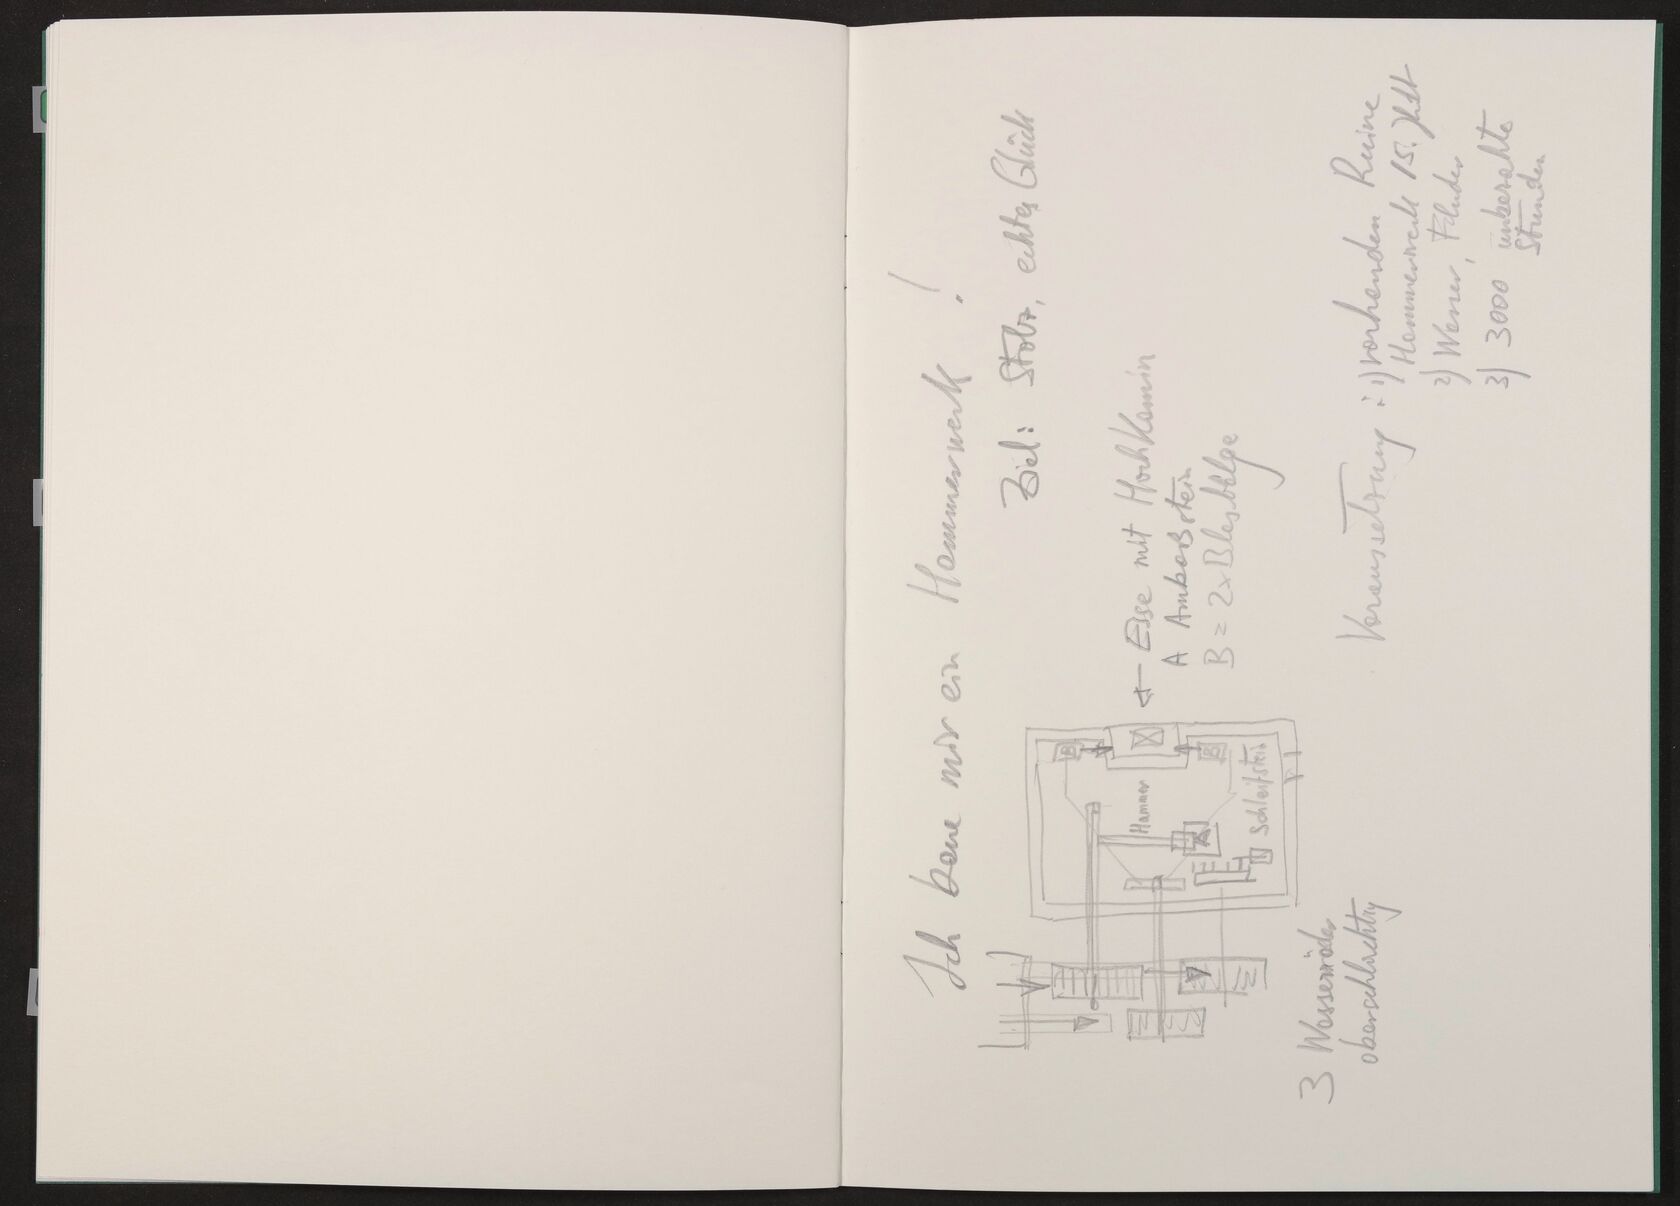 Ich baue mir ein Hammerwerk!
Ziel: Stolz, echtes Glück
← Esse mit Hochkamin
A Amboßstein
B = 2x Blasbälge
B
B
Hammer
A
Schleifstein
3 Wasserräder
oberschlächtig
Voraussetzung: 1) vorhanden Ruine
Hammerwerk 15. Jhdt
2) Wasser, Fluder
3) 3000 unbezahlte
Stunden